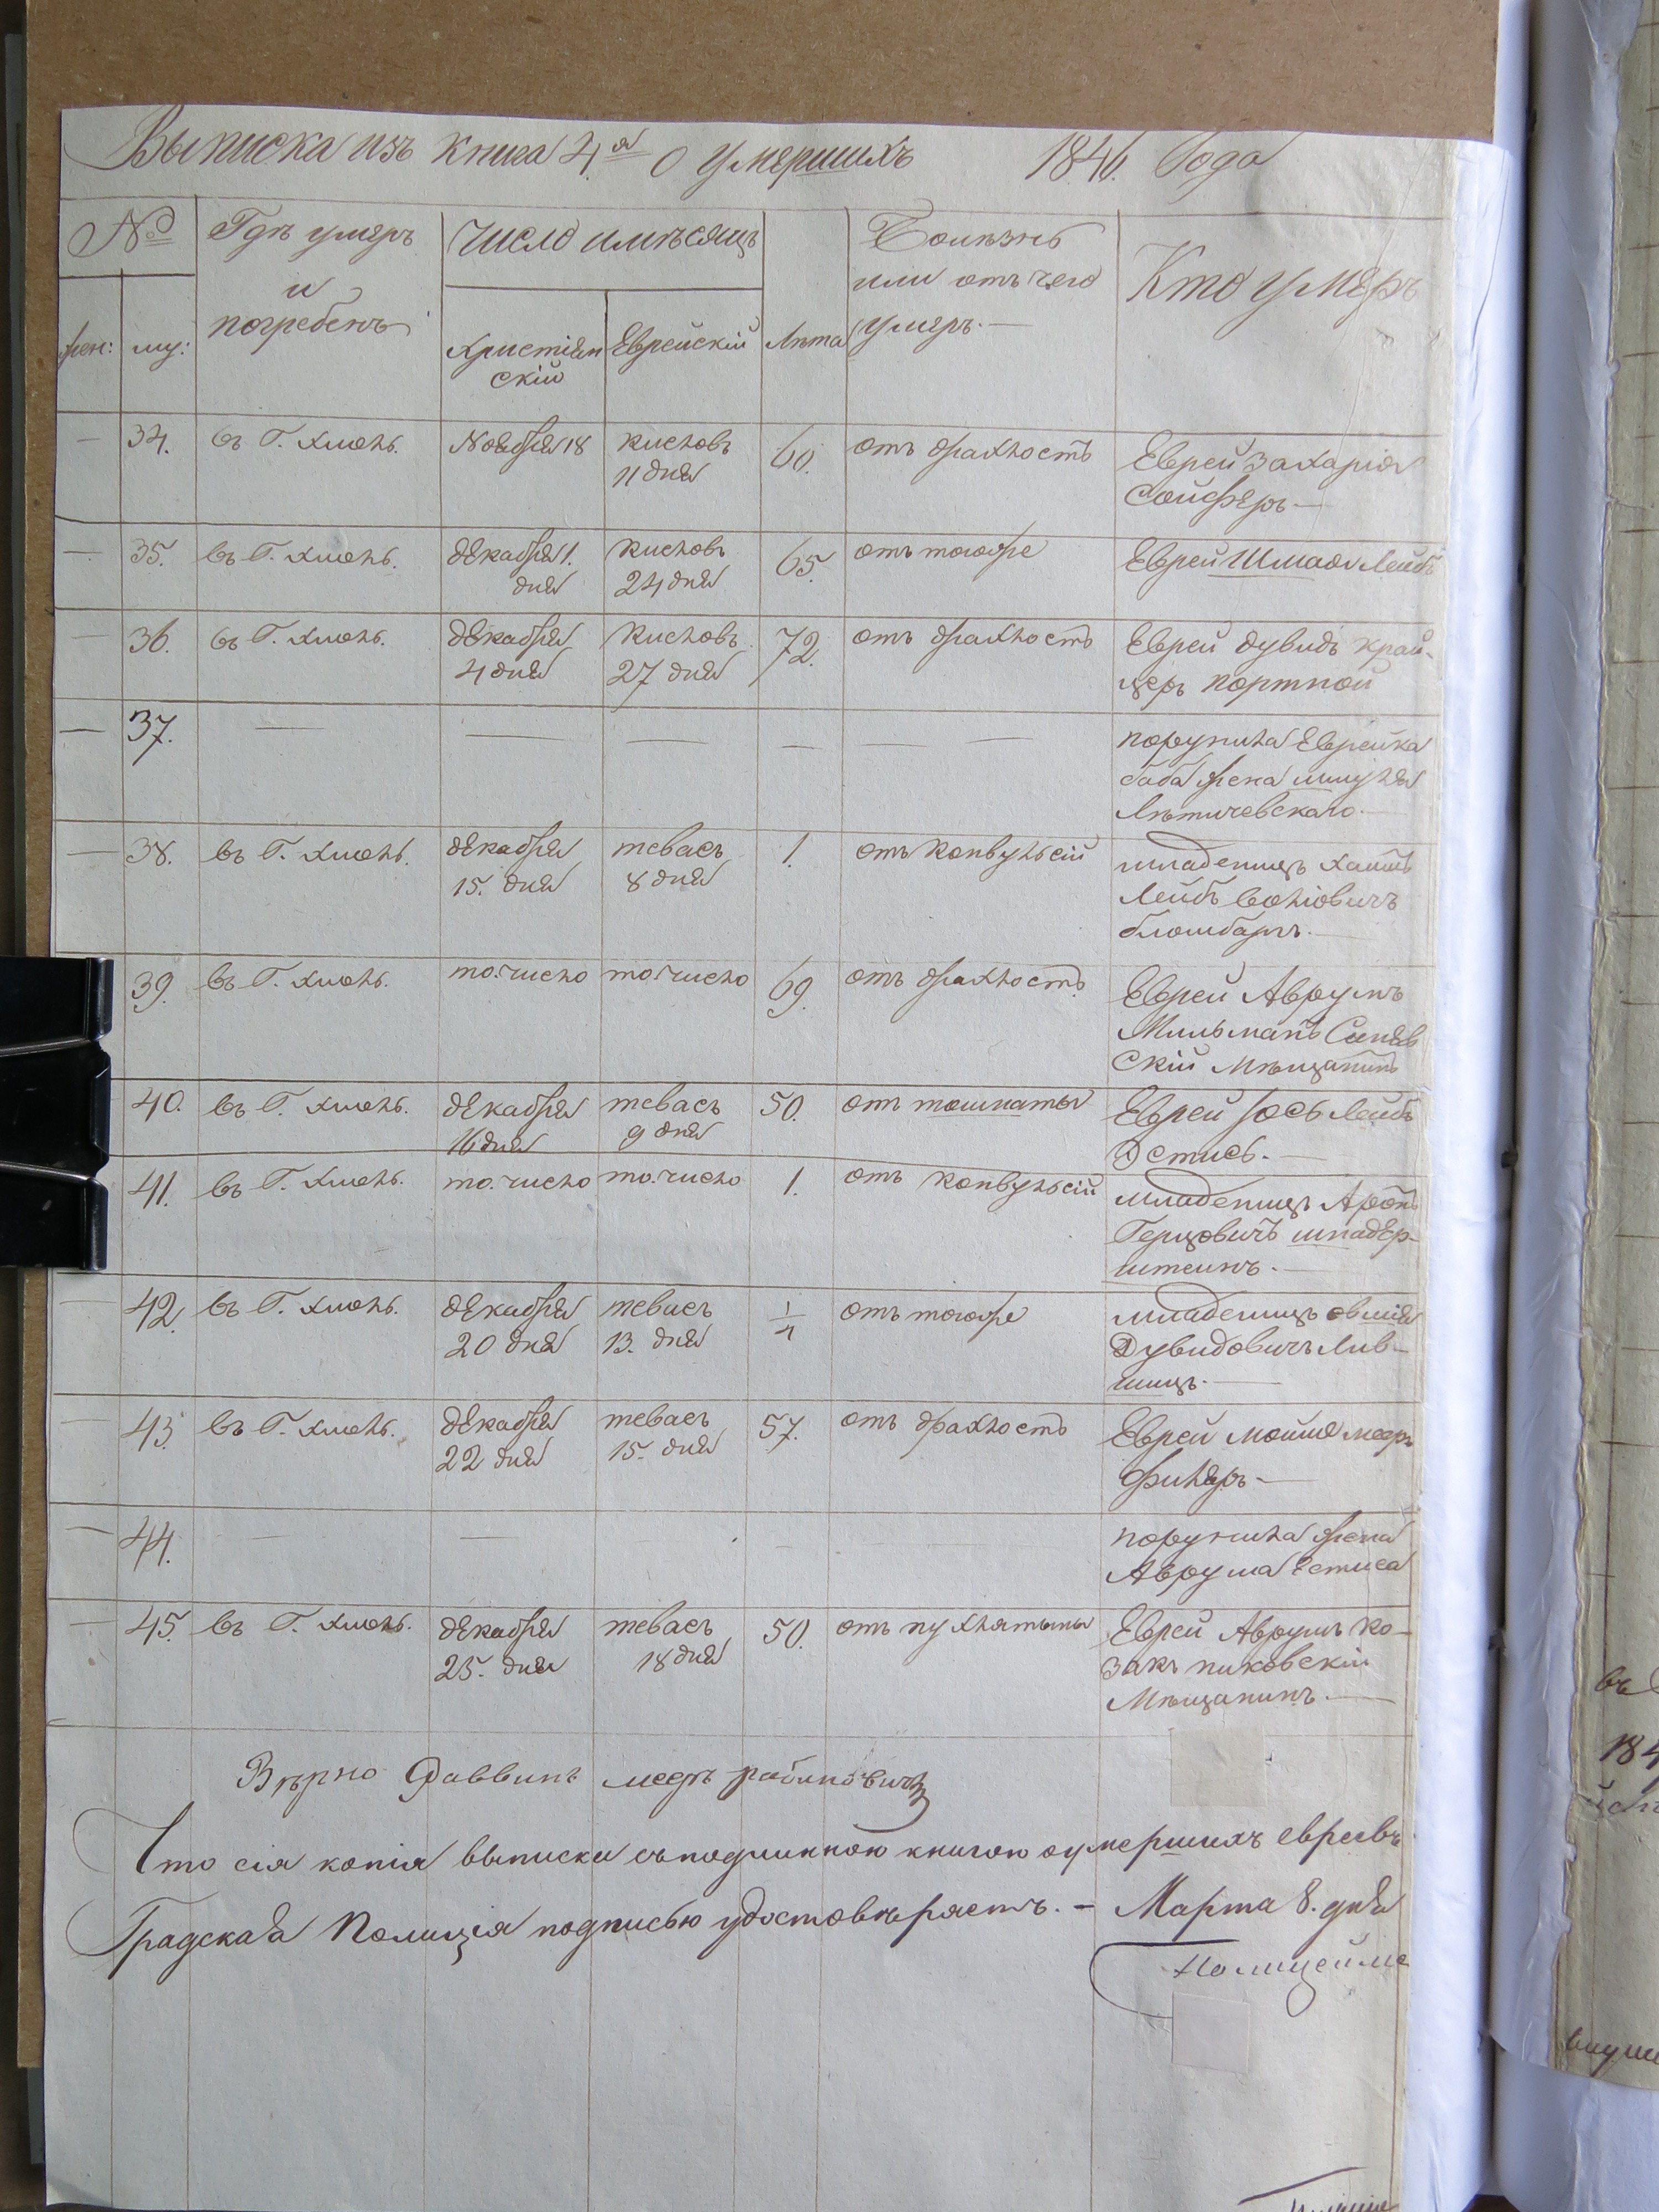 Выписка изъ книга 4.я о умершихъ 1846. Года
№ Гдѣ умеръ и погребенъ
Число и мѣсяцъ
Болѣзнь или отъ чего умеръ.—
Кто умеръ
жен: му: Христіянскій Еврейскій Лѣта
— 34. въ Г. Хмель. Ноября 18 кисловъ 11 дня 60. отъ драхлость Еврей Захарія Сойферъ.—
— 35. въ Г. Хмель. декабря 1. дня Кисловъ 24 дня 65. отъ тогоже Еврей Шмаољ Лейбъ
— 36. въ Г. Хмель. декабря 4 дня Кисловъ 27 дня 72. отъ драхлость Еврей дувидъ край-
церъ портной
— 37. — — — — — — поручила Еврейка
баба жена шмуля
Лѣтичевскаго.—
— 38. въ Г. Хмель. декабря 15. дня тевасъ 8 дня 1. отъ конвульсій младенецъ хаимъ
Лейбъ
блюмбаргъ.—
39. въ Г. Хмель. то. число то. число 69. отъ драхлость Еврей Аврумъ
Мильманъ Синяв
скій Мѣщанинъ
40. въ Г. Хмель. декабря 16 дня тевасъ 9 дня 50. отъ Еврей Іось Лейбъ
Эстисъ.—
41. въ Г. Хмель. то. число то. число 1. отъ конвульсій младенецъ Аронъ
Герцовичъ шнадер-
штеинъ.—
— 42. въ Г. Хмель. декабря 20 дня тевасъ 13. дня 1/4 отъ тогоже младенецъ овшія
Дувидовичъ Лив-
шицъ.—
— 43. въ Г. Хмель. декабря 22 дня тевасъ 15. дня 57. отъ драхлость Еврей моише мееръ
филеръ—
— 44. — — поручила жена
Аврума Естиса
— 45. въ Г. Хмель. декабря 25. дня тевасъ 18 дня 50. отъ пухлятыны Еврей Аврумъ Ко-
закъ пиковскій
Мѣщанинъ.—
Вѣрно Раввинъ мееръ рабиновичъ
Что сія копія выписки съ подлинною книгою о умершихъ евреевъ
Градская Полиція подписью удостовѣряетъ.— Марта 8. дня
Полицейме